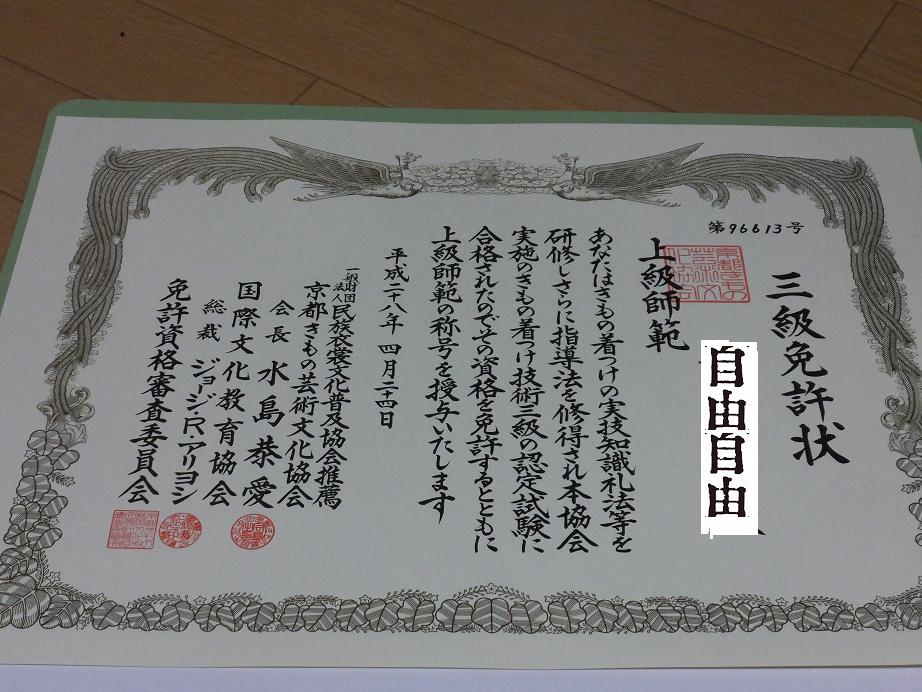 第96613号
三級免許状
上級師範
自由自由
あなたはきもの着つけの実技知識礼法等を
研修しさらに指導法を修得され本協会
実施のきもの着つけ技術三級の認定試験に
合格されたのでその資格を免許するとともに
上級師範の称号を授与いたします
平成二十八年 四月二十四日
一般財団法人民族衣裳文化普及協会推薦
京都きもの芸術文化協会
会長 水島恭愛
国際文化教育協会
総裁 ジョージ・R・アリヨシ
免許資格審査委員会